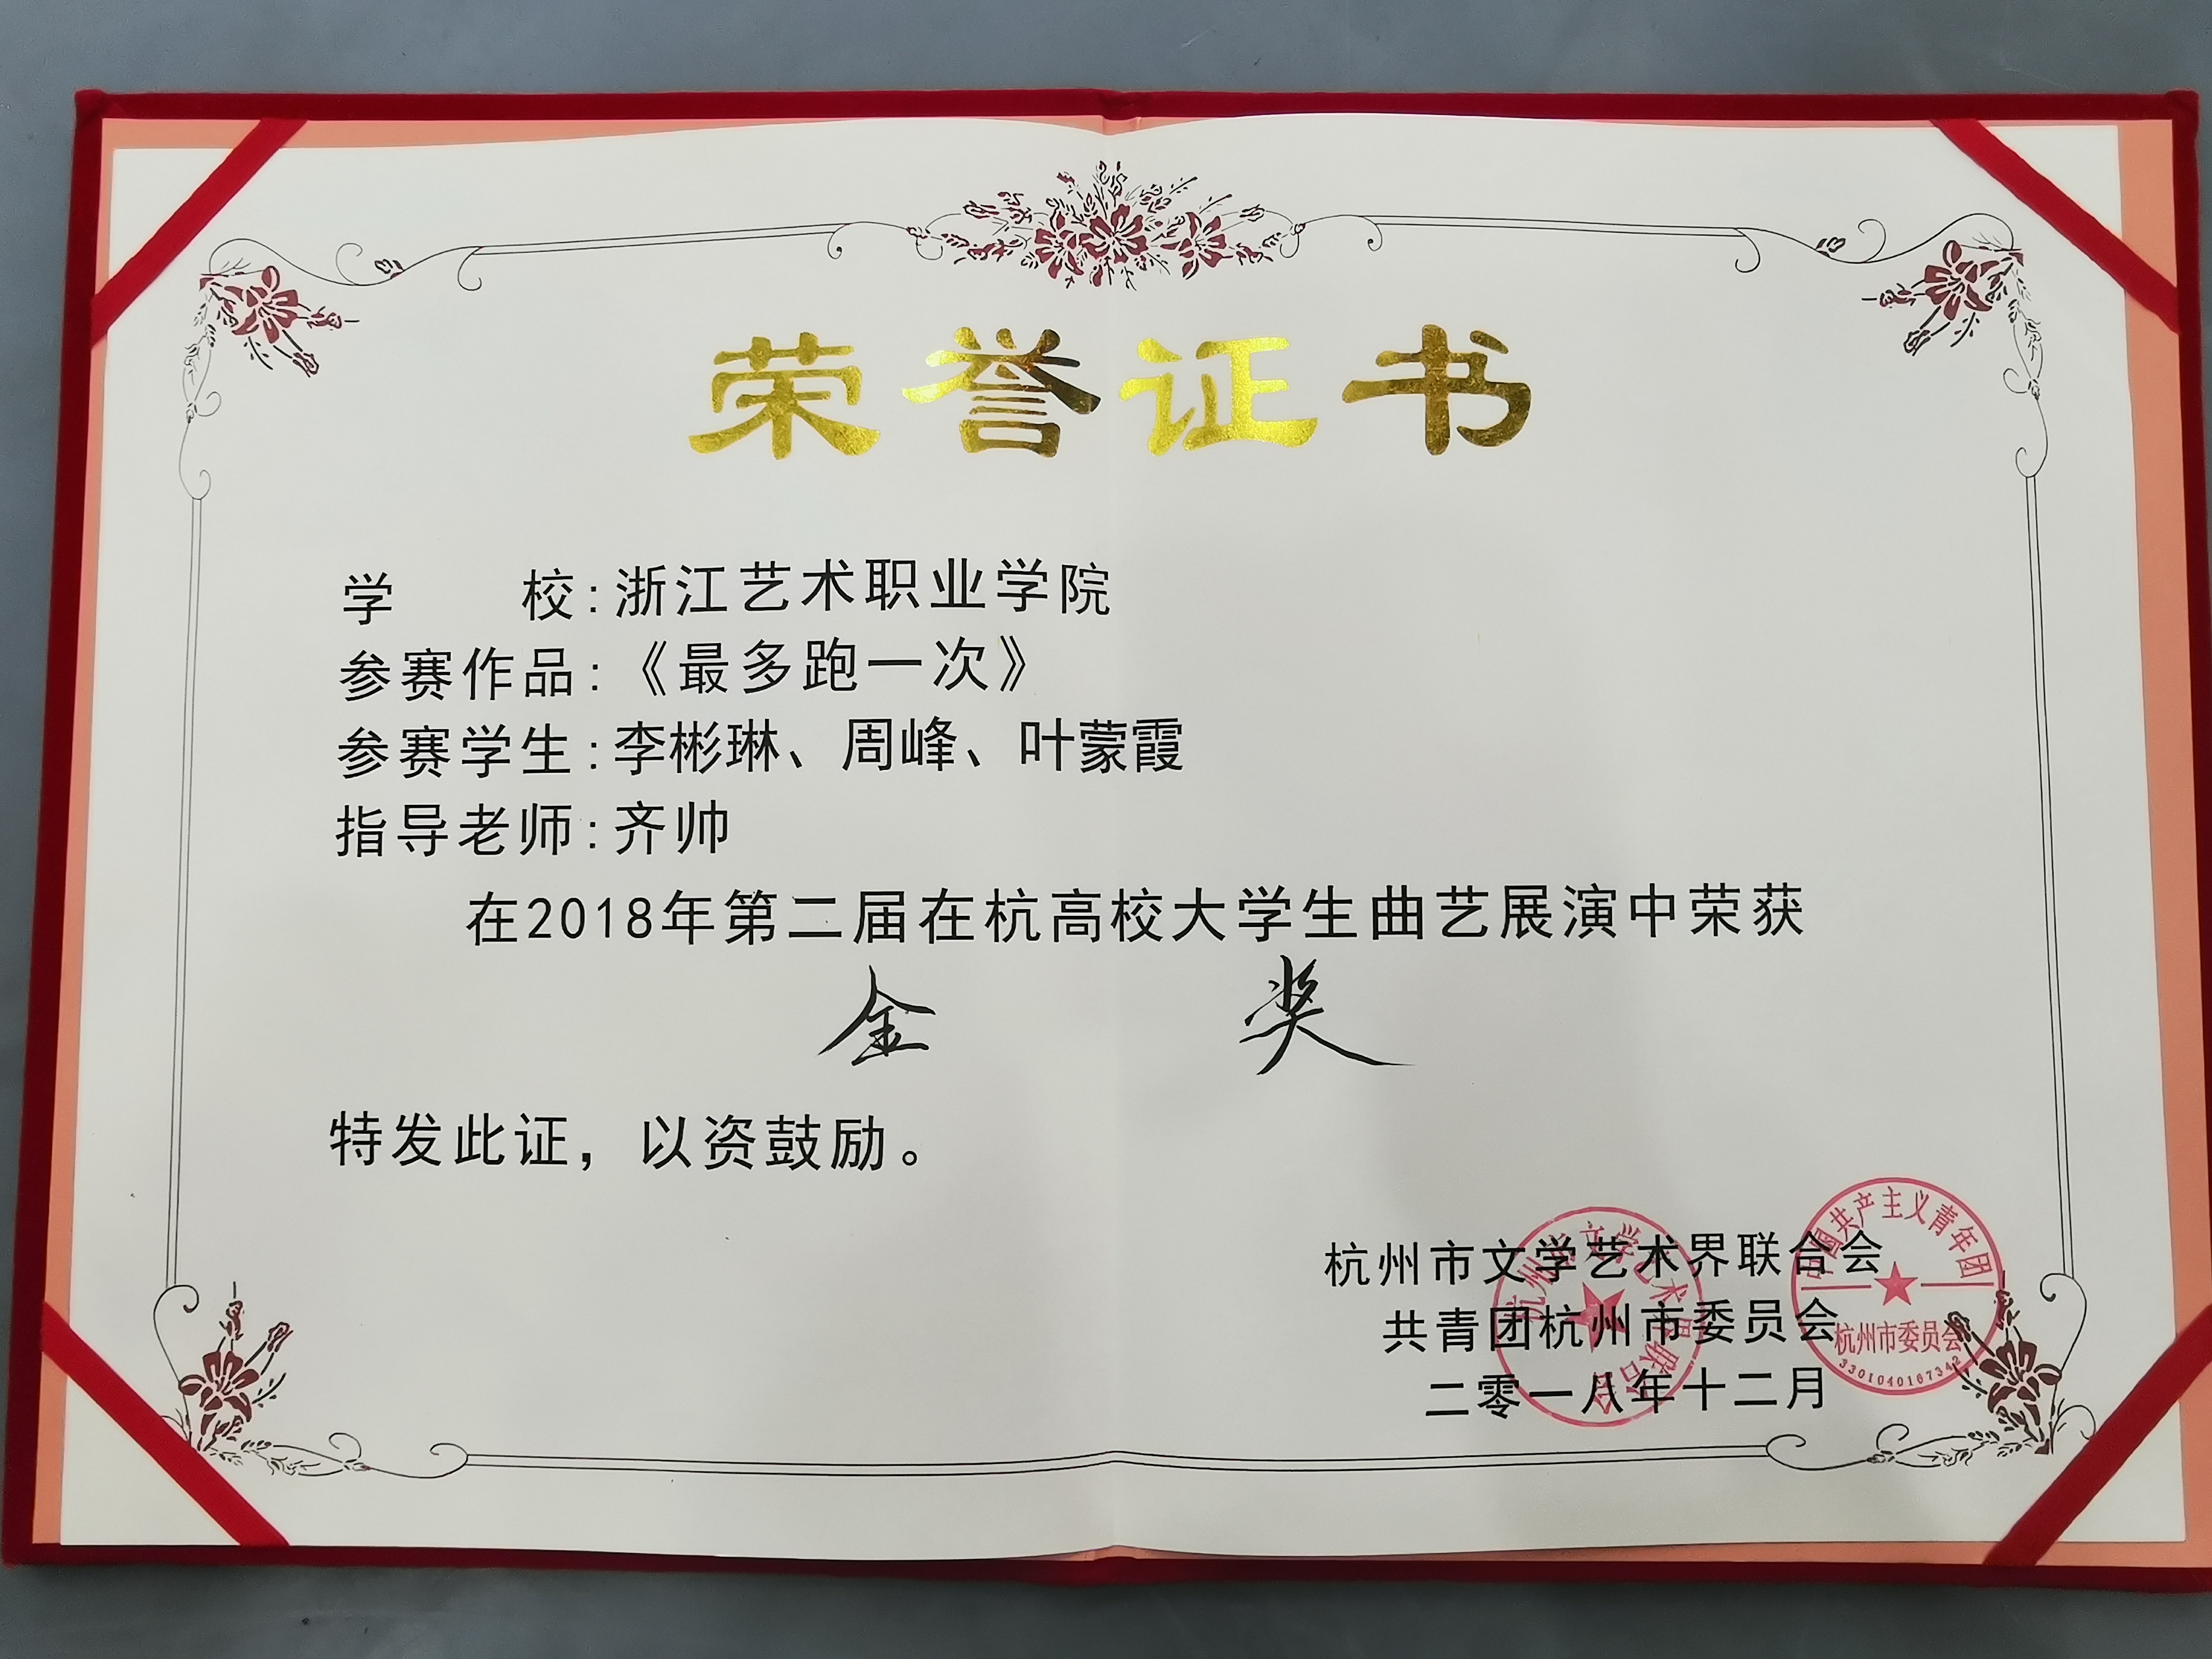 荣誉证书
学 校:浙江艺术职业学院
参赛作品:《最多跑一次》
参赛学生:李彬琳、周峰、叶蒙霞
指导老师:齐帅
在2018年第二届在杭高校大学生曲艺展演中荣获
金 奖
特发此证，以资鼓励。
杭州市文学艺术界联合会
共青团杭州市委员会
二零一八年十二月
杭州市文学艺术界联合会
中国共产主义青年团
杭州市委员会
3301040167342